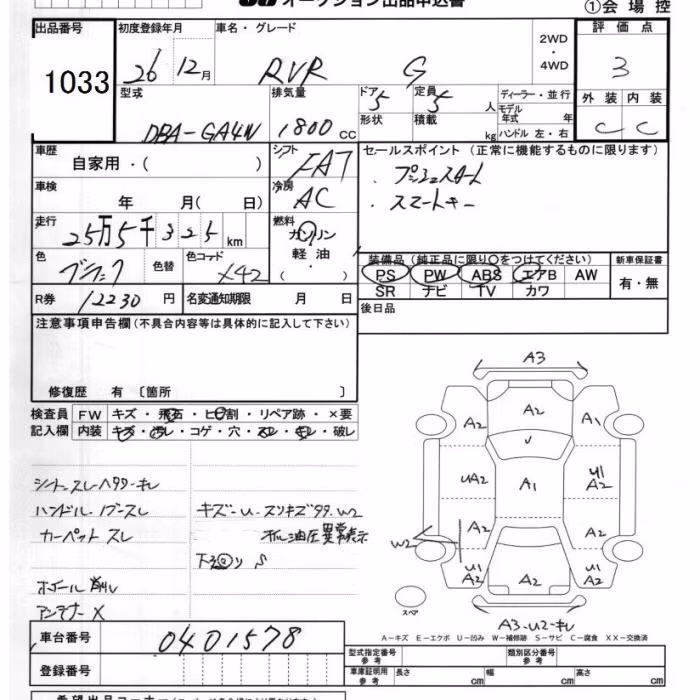 オークション出品申込書
①会場控
出品番号 初度登録年月 車名・グレード 評価点
1033 26 12月 RVR G 2WD・4WD 3
型式 排気量 ドア 定員 ディーラー・並行 外装 内装
DBA-GA4W 1800cc 5 5人 モデル年式 年 C C
形状 積載 kg ハンドル 左・右
車歴 シフト セールスポイント (正常に機能するものに限ります)
自家用・( ) FAT ・プッシュスタート
車検 冷房 ・スマートキー
年 月( 日) AC
走行 燃料
25万5千325km ガソリン
軽油
( ・ )
色 ブラック 色替 色コード X42
装備品 (純正品に限り○をつけてください) 新車保証書
PS PW ABS エアB AW 有・無
SR ナビ TV カワ
R券 12230円 名変通知期限 月 日
後日品
注意事項申告欄(不具合内容等は具体的に記入して下さい)
修復歴 有 〔箇所 〕
検査員 FW キズ・飛石・ヒビ割・リペア跡・×要
記入欄 内装 キズ・汚レ・コゲ・穴・スレ・キレ・破レ
シートスレ ヘタリ キレ
ハンドル・ノブスレ キズ・U・スリキズ W2
カーペットスレ 油圧異常表示
下
ホイール 削レ
アンテナ X
A3
A2
A2 A1
UA2 A1 U1 A2
A2 A2
W2
U1 A2 A2 U1 A2
スペア
A3・U2・キレ
A-キズ E-エクボ U-凹み W-補修跡 S-サビ C-腐食 XX-交換済
車台番号 0401578
登録番号
型式指定番号 参考 類別区分番号 参考
車庫証明用 参考 長さ cm 幅 cm 高さ cm